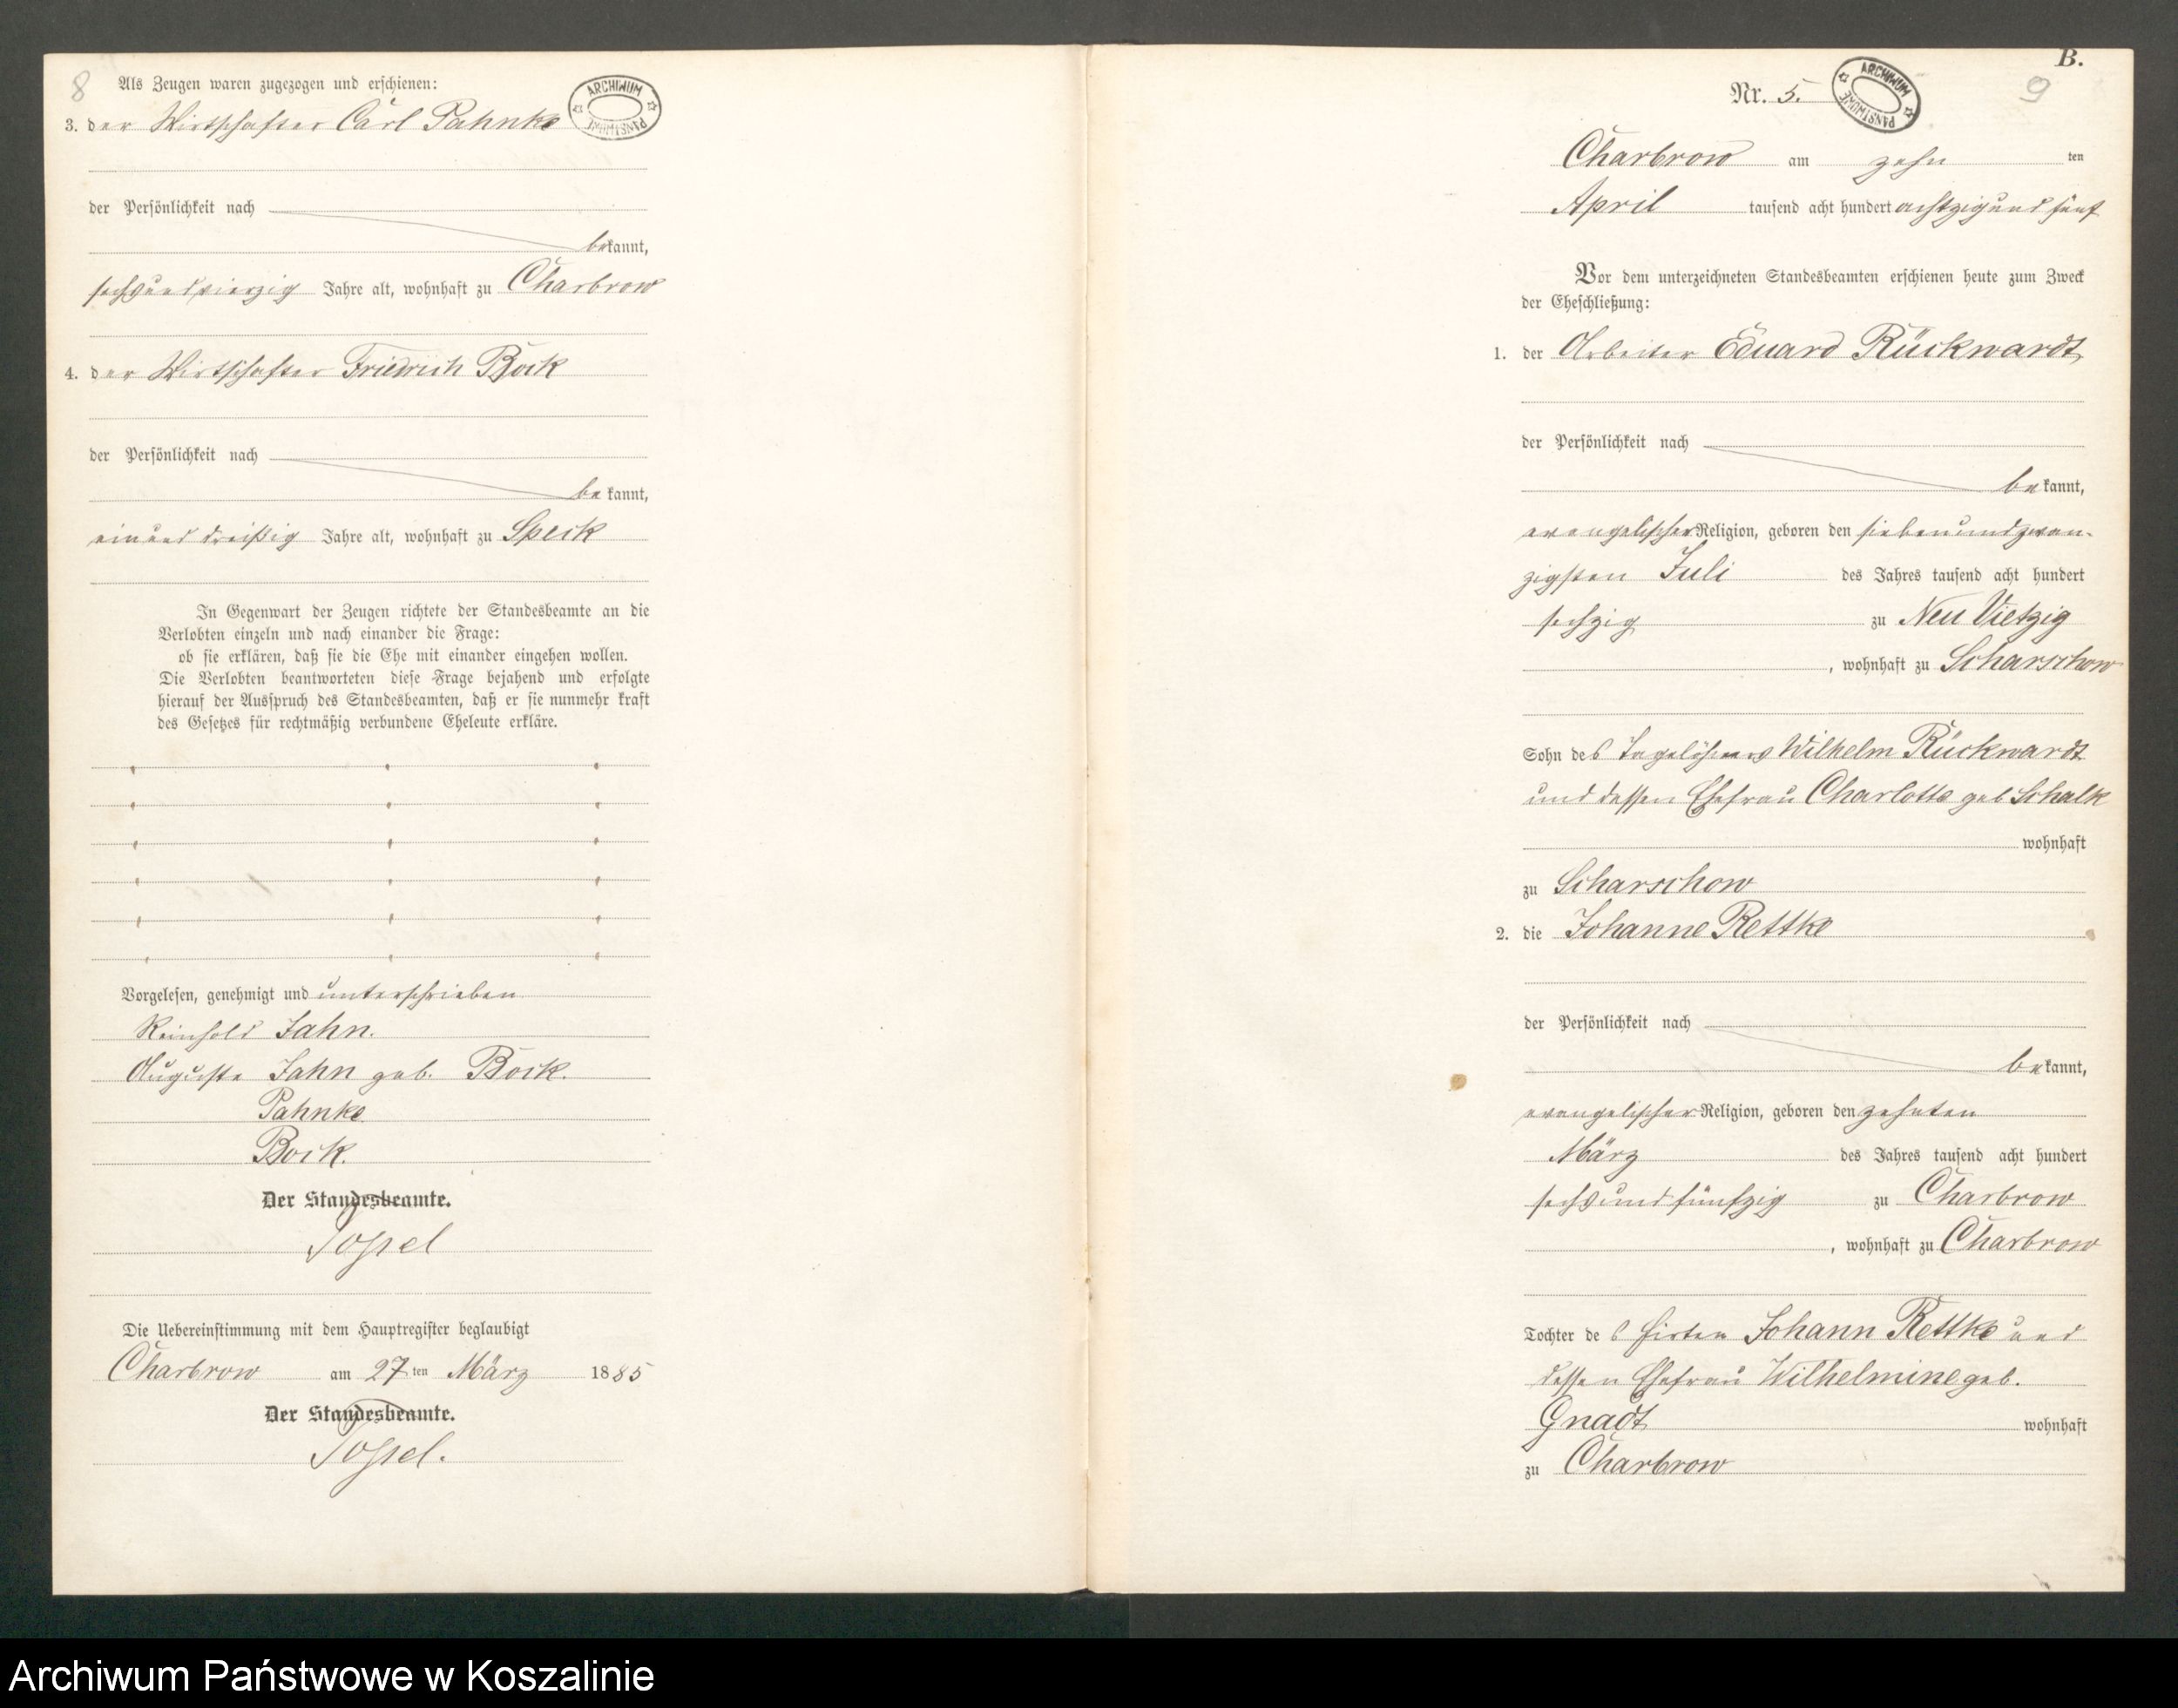 8
Als Zeugen waren zugezogen und erschienen:
ARCHIWUM PAŃSTWOWE
3. der Wirtschafter Carl Pahnke
der Persönlichkeit nach
bekannt,
sechsundvierzig Jahre alt, wohnhaft zu Charbrow
4. der Wirtschafter Friedrich Bock
der Persönlichkeit nach
bekannt,
einunddreißig Jahre alt, wohnhaft zu Speck
In Gegenwart der Zeugen richtete der Standesbeamte an die
Verlobten einzeln und nach einander die Frage:
ob sie erklären, daß sie die Ehe mit einander eingehen wollen.
Die Verlobten beantworteten diese Frage bejahend und erfolgte
hierauf der Ausspruch des Standesbeamten, daß er sie nunmehr kraft
des Gesetzes für rechtmäßig verbundene Eheleute erkläre.
Vorgelesen, genehmigt und unterschrieben
Reinhold Jahn.
Auguste Jahn geb. Bock.
Pahnke
Bock.
Der Standesbeamte.
Die Uebereinstimmung mit dem Hauptregister beglaubigt
Charbrow am 27ten März 1885
Der Standesbeamte.
B.
Nr. 5.
ARCHIWUM PAŃSTWOWE
9
Charbrow am zehn ten
April tausend acht hundert achtzigund fünf
Vor dem unterzeichneten Standesbeamten erschienen heute zum Zweck
der Eheschließung:
1. der Arbeiter Eduard Rückwardt
der Persönlichkeit nach
bekannt,
evangelischer Religion, geboren den siebenundzwan-
zigsten Juli des Jahres tausend acht hundert
sechzig zu Neu Vietzig
, wohnhaft zu Scharschow
Sohn des Tagelöhners Wilhelm Rückwardt
und dessen Ehefrau Charlotte geb Schalk
wohnhaft
zu Scharschow
2. die Johanne Rettke
der Persönlichkeit nach
bekannt,
evangelischer Religion, geboren den zehnten
März des Jahres tausend acht hundert
sechsundfünfzig zu Charbrow
, wohnhaft zu Charbrow
Tochter des Hirten Johann Rettke und
dessen Ehefrau Wilhelmine geb.
Gnadt wohnhaft
zu Charbrow
Archiwum Państwowe w Koszalinie